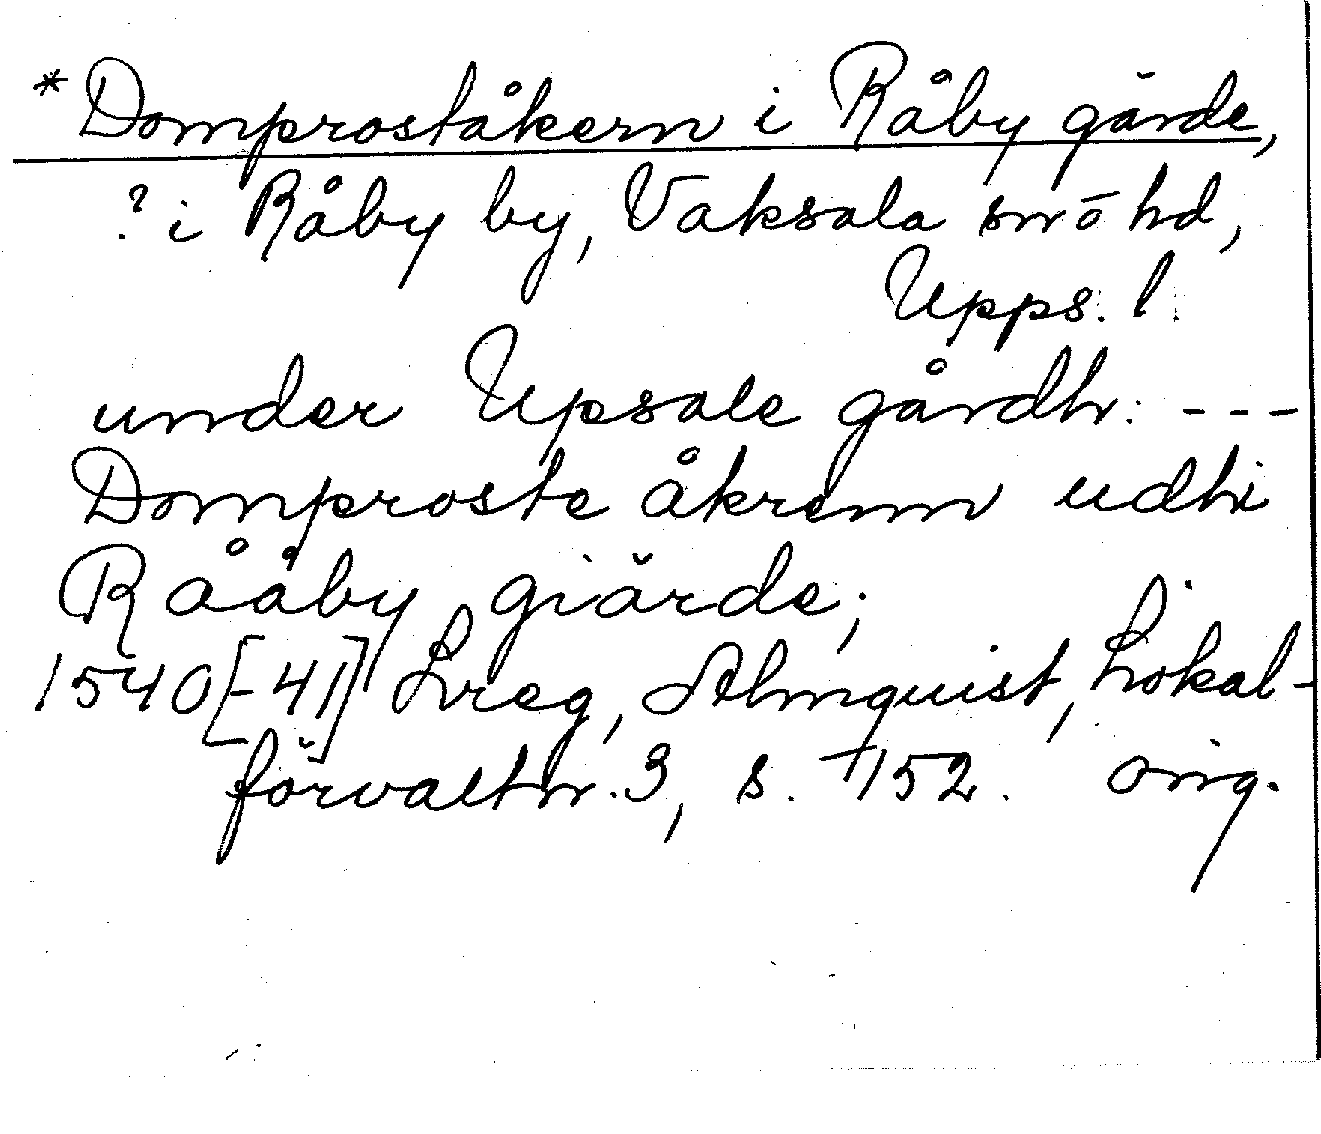 *Domproståkern i Råby gärde,
? i Råby by, Vaksala sn o hd,
Upps. l.
under Upsale gårdh: ---
Domproste åkrenn udhi
Rååby giärde;
1540[-41] Lreg, Almquist, Lokal-
förvaltn. 3, s. 152. orig.